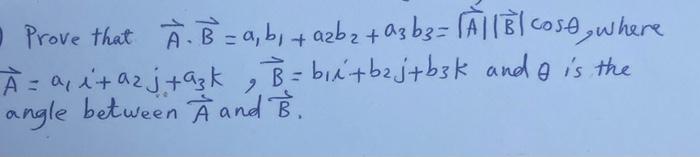 ) Prove that A⃗. B⃗ = a₁b₁ + a₂b₂ + a₃b₃ = |A⃗||B⃗| cosθ, where
A⃗ = a₁ i + a₂ j + a₃ k , B⃗ = b₁i + b₂j + b₃k and θ is the
angle between A⃗ and B⃗.